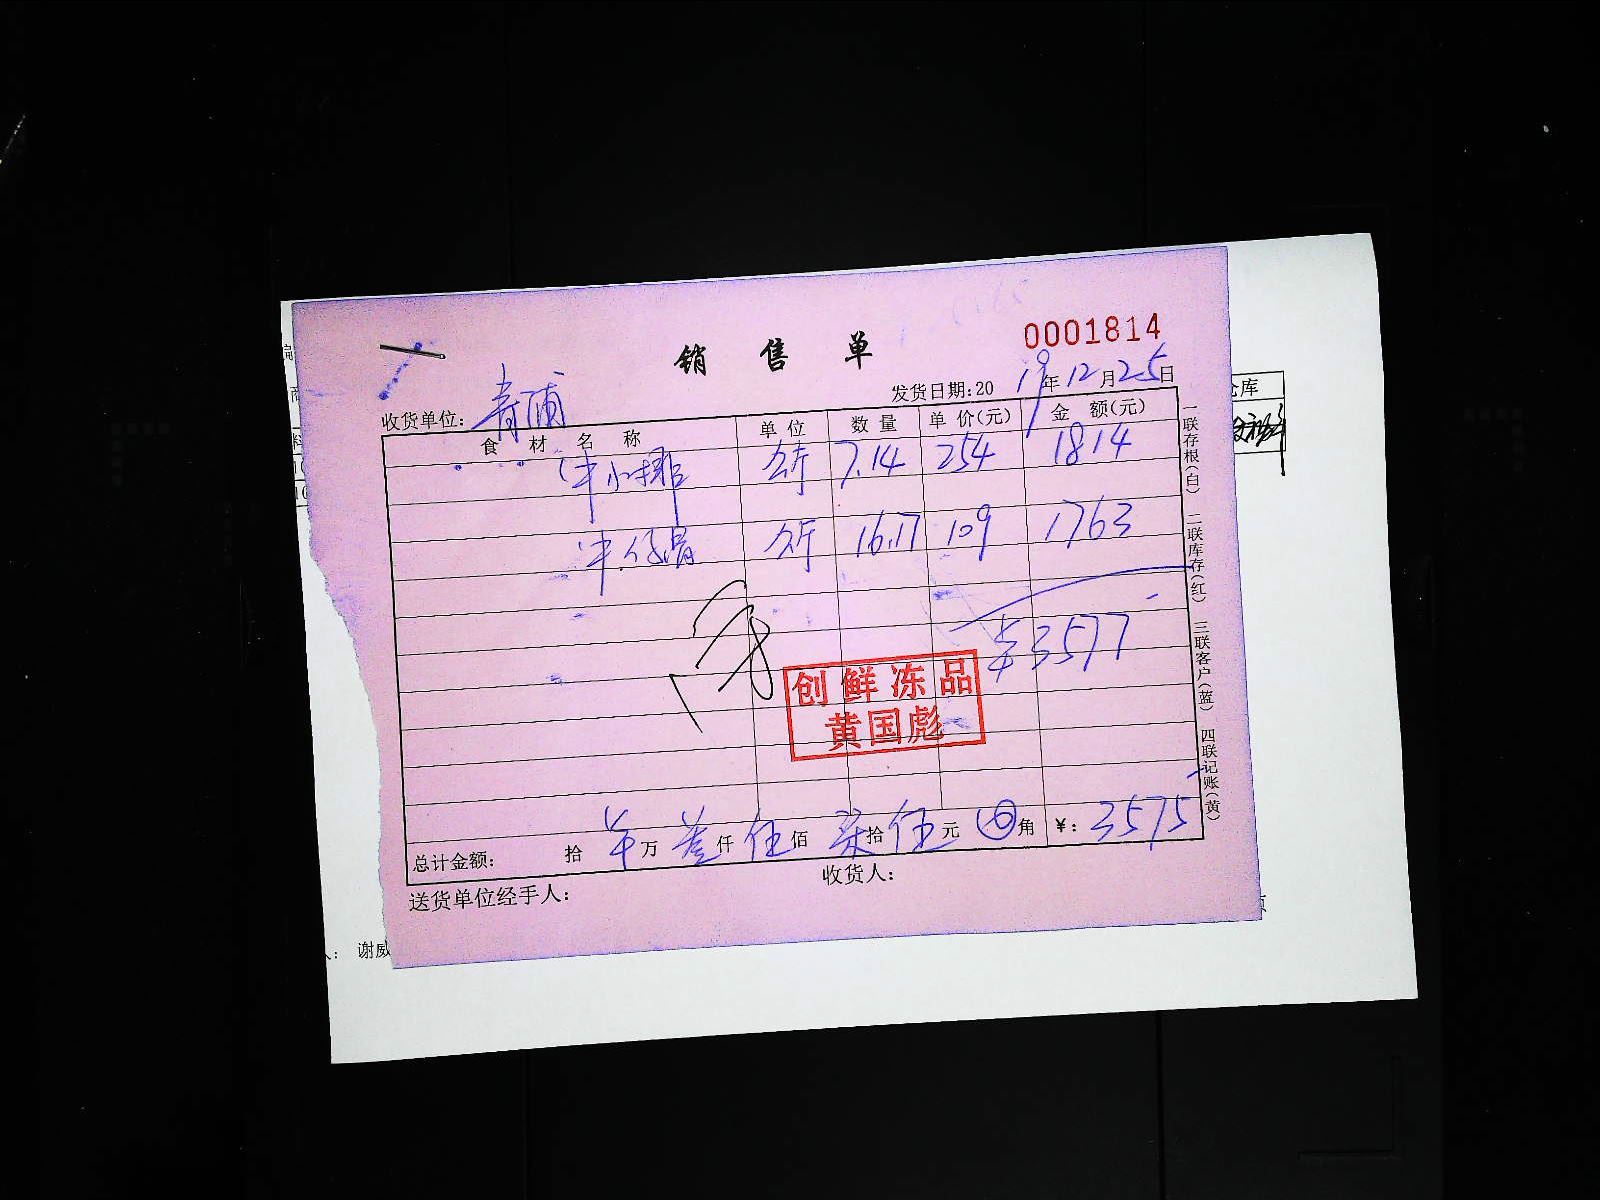 销 售 单
0001814
发货日期:20 19年12月25日
收货单位: 青浦
食 材 名 称 单 位 数 量 单 价(元) 金 额(元)
牛小排 公斤 7.14 254 1814
牛仔骨 公斤 16.17 109 1763
¥3577
创鲜冻品
黄国彪
总计金额: 拾 万 叁仟 伍佰 柒拾 伍元 角 ¥: 3575
送货单位经手人: 收货人:
一联存根(白) 二联库存(红) 三联客户(蓝) 四联记账(黄)
仓库
谢威